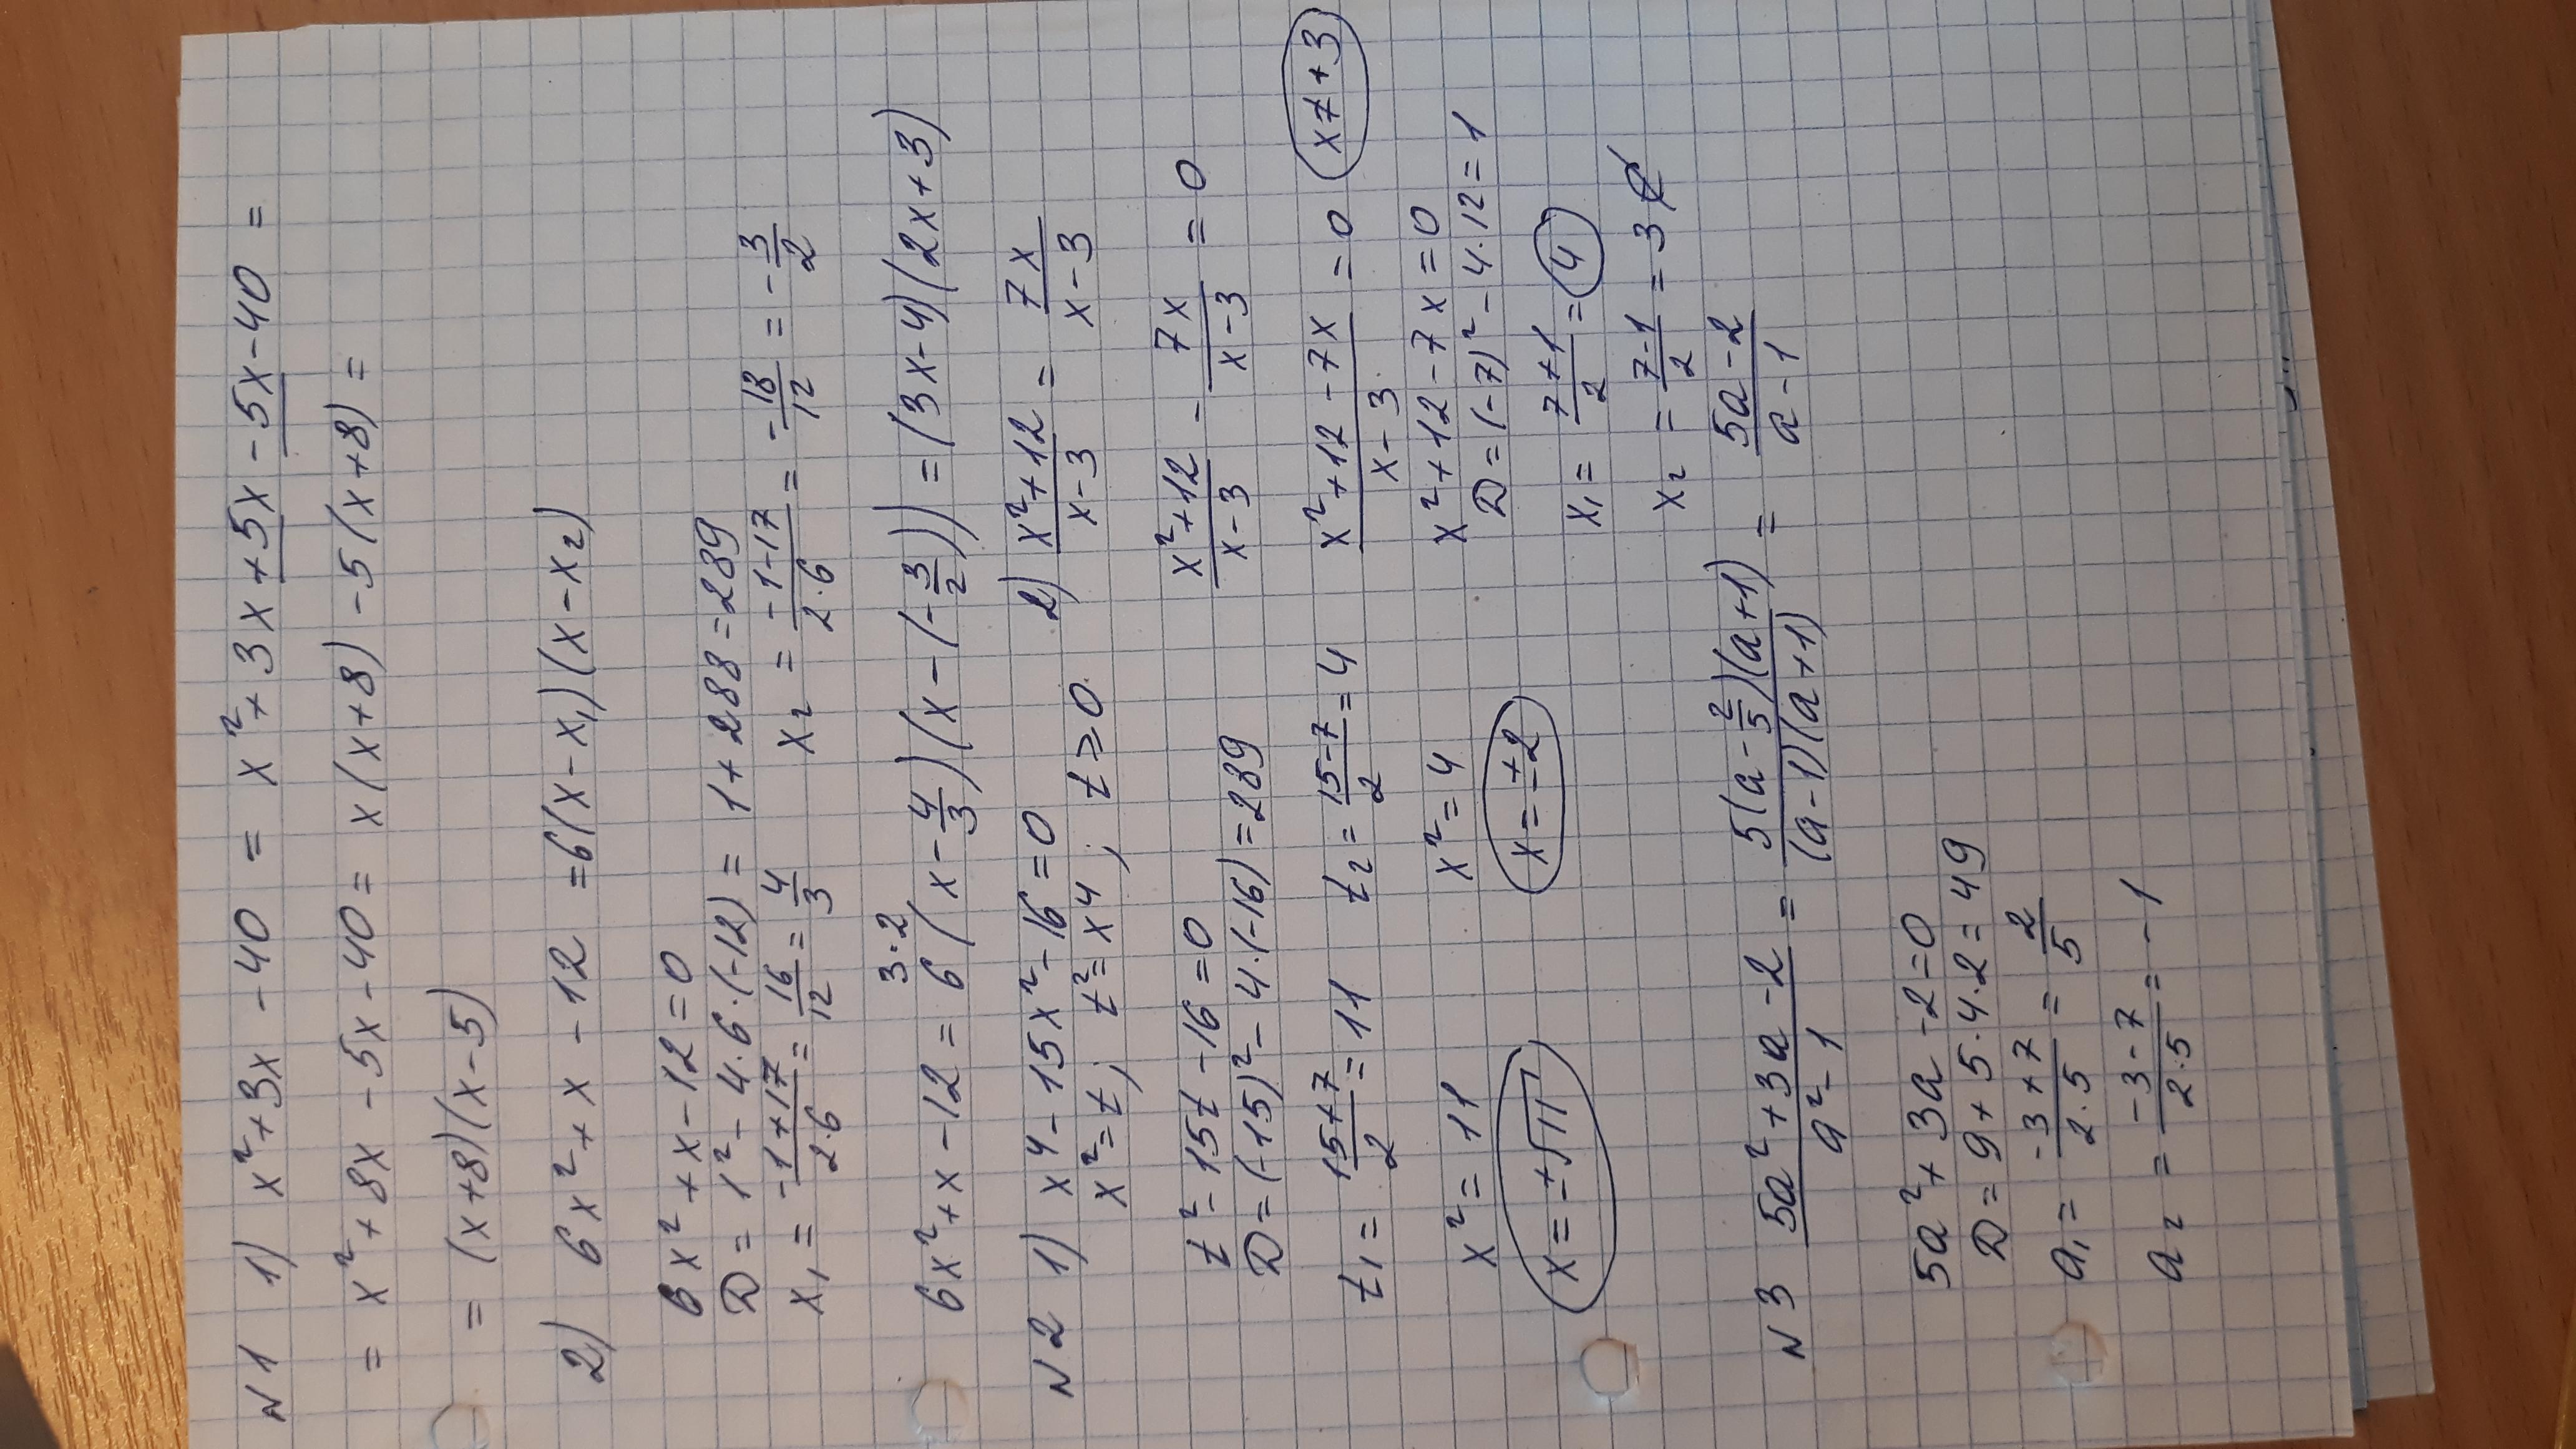 N1 1) x²+3x-40 = x²+3x+5x-5x-40 =
= x²+8x-5x-40 = x(x+8)-5(x+8) =
= (x+8)(x-5)
2) 6x²+x-12 =6(x-x₁)(x-x₂)
6x²+x-12=0
D=1²-4·6·(-12) = 1+288=289
x₁ = (-1+17)/(2·6) = 16/12 = 4/3 x₂ = (-1-17)/(2·6) = -18/12 = -3/2
3·2
6x²+x-12 = 6(x-4/3)(x-(-3/2)) =(3x-4)(2x+3)
N2 1) x⁴-15x²-16=0
x²=t; t²=x⁴; t≥0
t²-15t-16=0
D=(-15)²-4·(-16)=289
t₁ = (15+7)/2 = 11 t₂ = (15-7)/2 = 4
x² = 11 x²=4
x=±√11 x=±2
2) (x²+12)/(x-3) = 7x/(x-3)
(x²+12)/(x-3) - 7x/(x-3) = 0
(x²+12-7x)/(x-3) = 0 x≠+3
x²+12-7x=0
D=(-7)²-4·12=1
x₁= (7+1)/2 = 4
x₂ = (7-1)/2 = 3
N3 (5a²+3a-2)/(a²-1) = (5(a-2/5)(a+1))/((a-1)(a+1)) = (5a-2)/(a-1)
5a²+3a-2=0
D=9+5·4·2=49
a₁= (-3+7)/(2·5) = 2/5
a₂ = (-3-7)/(2·5) = -1